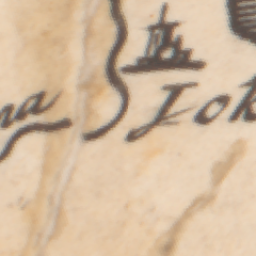 na
Iok